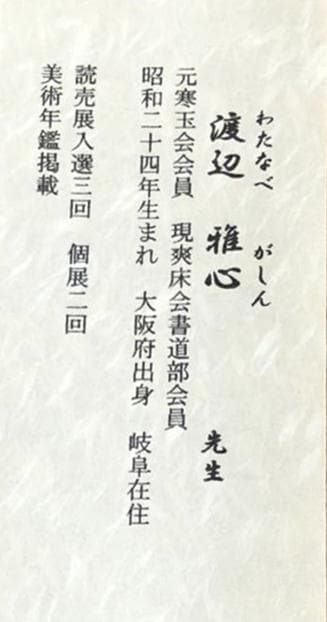 わたなべ　がしん
渡辺　雅心　先生
元寒玉会会員　現爽床会書道部会員
昭和二十四年生まれ　大阪府出身　岐阜在住
読売展入選三回　個展二回
美術年鑑掲載